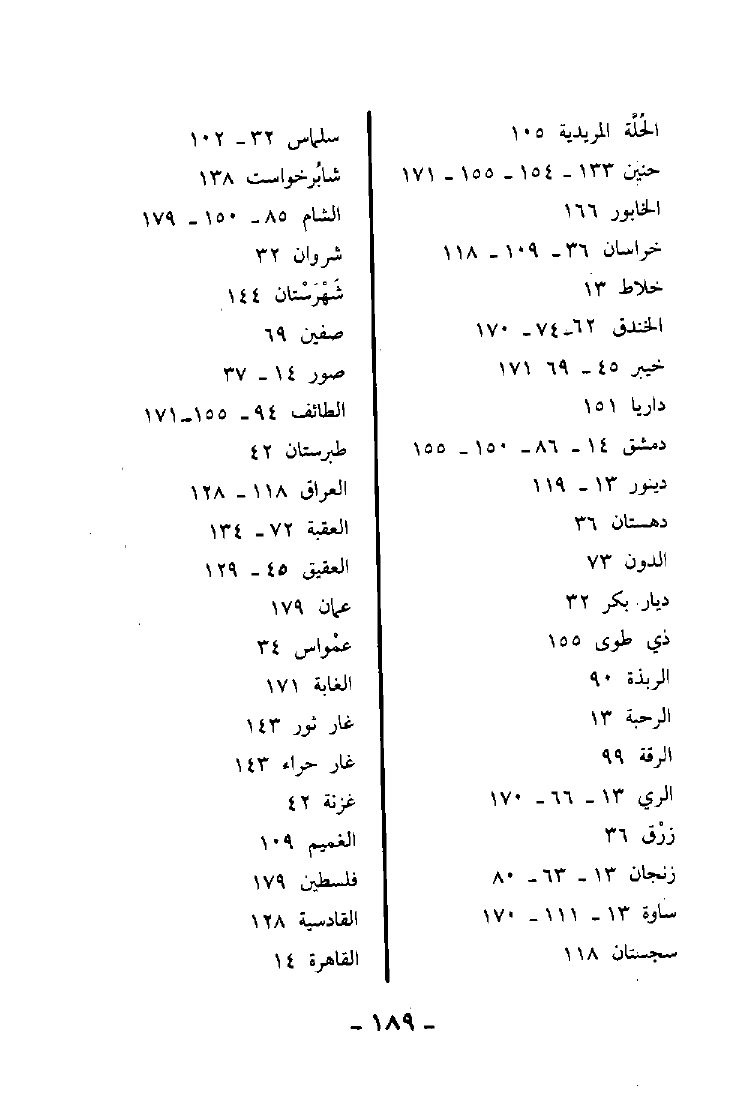 الحُلَّة المزيدية ١٠٥
حنين ١٣٣ ـ ١٥٤ ـ ١٥٥ ـ ١٧١
الخابور ١٦٦
خراسان ٣٦ ـ ١٠٩ ـ ١١٨
خلاط ١٣
الخندق ٦٢ـ٧٤ ـ ١٧٠
خيبر ٤٥ ـ ٦٩ ١٧١
داريا ١٥١
دمشق ١٤ ـ ٨٦ ـ ١٥٠ ـ ١٥٥
دينور ١٣ ـ ١١٩
دهستان ٣٦
الدون ٧٣
ديار بكر ٣٢
ذي طوى ١٥٥
الربذة ٩٠
الرحبة ١٣
الرقة ٩٩
الري ١٣ ـ ٦٦ ـ ١٧٠
زرْق ٣٦
زنجان ١٣ ـ ٦٣ ـ ٨٠
ساوة ١٣ ـ ١١١ ـ ١٧٠
سجستان ١١٨
سلماس ٣٢ ـ ١٠٢
شابُرخواست ١٣٨
الشام ٨٥ ـ ١٥٠ ـ ١٧٩
شروان ٣٢
شَهْرَسْتان ١٤٤
صفين ٦٩
صور ١٤ ـ ٣٧
الطائف ٩٤ ـ ١٥٥ـ١٧١
طبرستان ٤٢
العراق ١١٨ ـ ١٢٨
العقبة ٧٢ ـ ١٣٤
العقيق ٤٥ ـ ١٢٩
عمان ١٧٩
عمْواس ٣٤
الغابة ١٧١
غار ثور ١٤٣
غار حراء ١٤٣
غزنة ٤٢
الغميم ١٠٩
فلسطين ١٧٩
القادسية ١٢٨
القاهرة ١٤
ـ ١٨٩ ـ